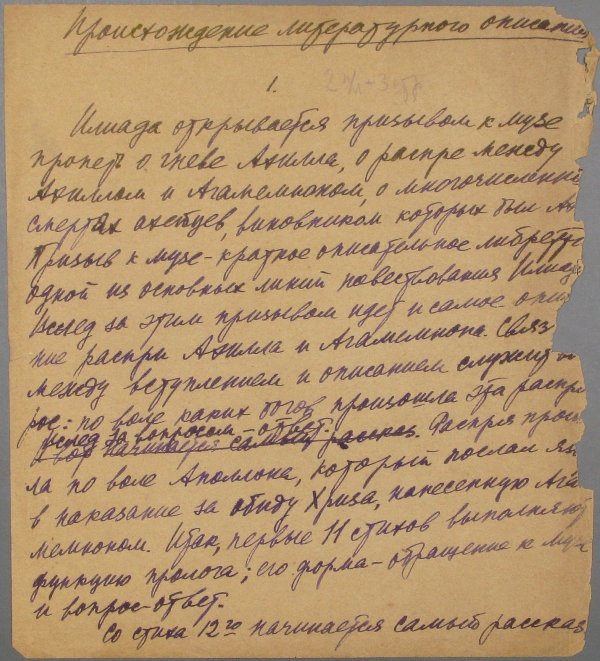 Происхождение литературного описания
1.
Илиада открывается призывом к музе
пропеть о гневе Ахилла, о распре между
Ахиллом и Агамемноном, о многочисленны
смертях ахейцев, виновником которых был Ах
Призыв к музе - краткое описательное либретто
одной из основных линий повествования Илиад
Вслед за этим призывом идет и самое опис
ние распри Ахилла и Агамемнона. Связ
между вступлением и описанием служит во
рос: по воле каких богов произошла эта распря
вслед за вопросом - ответ.
И вот начинается самый рассказ. Распря произ
ла по воле Аполлона, который послал яз
в наказание за обиду Хриза, нанесенную Ага
мемноном. Итак, первые 11 стихов выполняют
функцию пролога; его форма - обращение к музе
и вопрос-ответ.
Со стиха 12го начинается самый рассказ